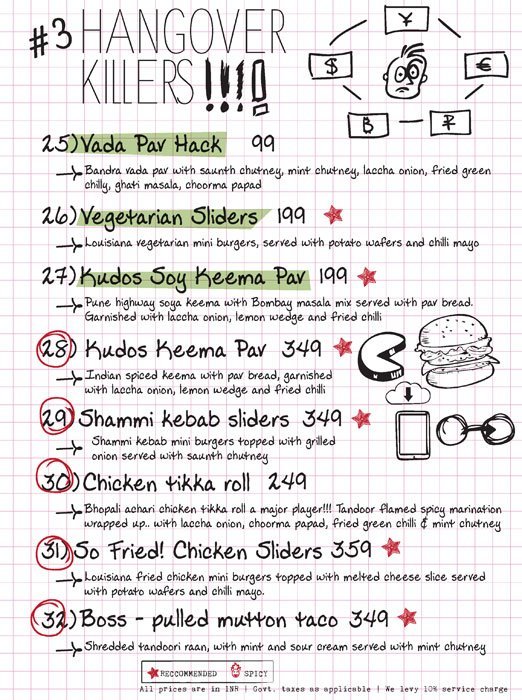 #3 HANGOVER
KILLERS !!!!
¥
$
€
B
₽
25) Vada Pav Hack 99
Bandra vada pav with saunth chutney, mint chutney, laccha onion, fried green
chilly, ghati masala, choorma papad
26) Vegetarian Sliders 199
Louisiana vegetarian mini burgers, served with potato wafers and chilli mayo
27) Kudos Soy Keema Pav 199
Pune highway soya keema with Bombay masala mix served with pav bread.
Garnished with laccha onion, lemon wedge and fried chilli
28) Kudos Keema Pav 349
Indian spiced keema with pav bread, garnished
with laccha onion, lemon wedge and fried chilli
29) Shammi kebab sliders 349
Shammi kebab mini burgers topped with grilled
onion served with saunth chutney
30) Chicken tikka roll 249
Bhopali achari chicken tikka roll a major player!!! Tandoor flamed spicy marination
wrapped up.. with laccha onion, choorma papad, fried green chilli & mint chutney
31) So Fried! Chicken Sliders 359
Louisiana fried chicken mini burgers topped with melted cheese slice served
with potato wafers and chilli mayo.
32) Boss - pulled mutton taco 349
Shredded tandoori raan, with mint and sour cream served with mint chutney
RECCOMMENDED SPICY
All prices are in INR | Govt. taxes as applicable | We levy 10% service charge